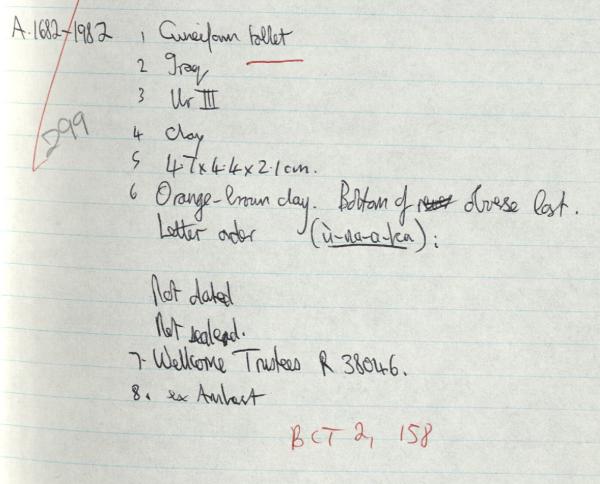 A.1682-1982 1 Cuneiform tablet
2 Iraq
3 Ur III
4 Clay
299
5 4.7 x 4.4 x 2.1 cm.
6 Orange-brown clay. Bottom of obverse lost.
Letter order (ù-na-a-ka):
Not dated
Not sealed.
7. Wellcome Trustees R 38046.
8. ex
BCT 2, 158